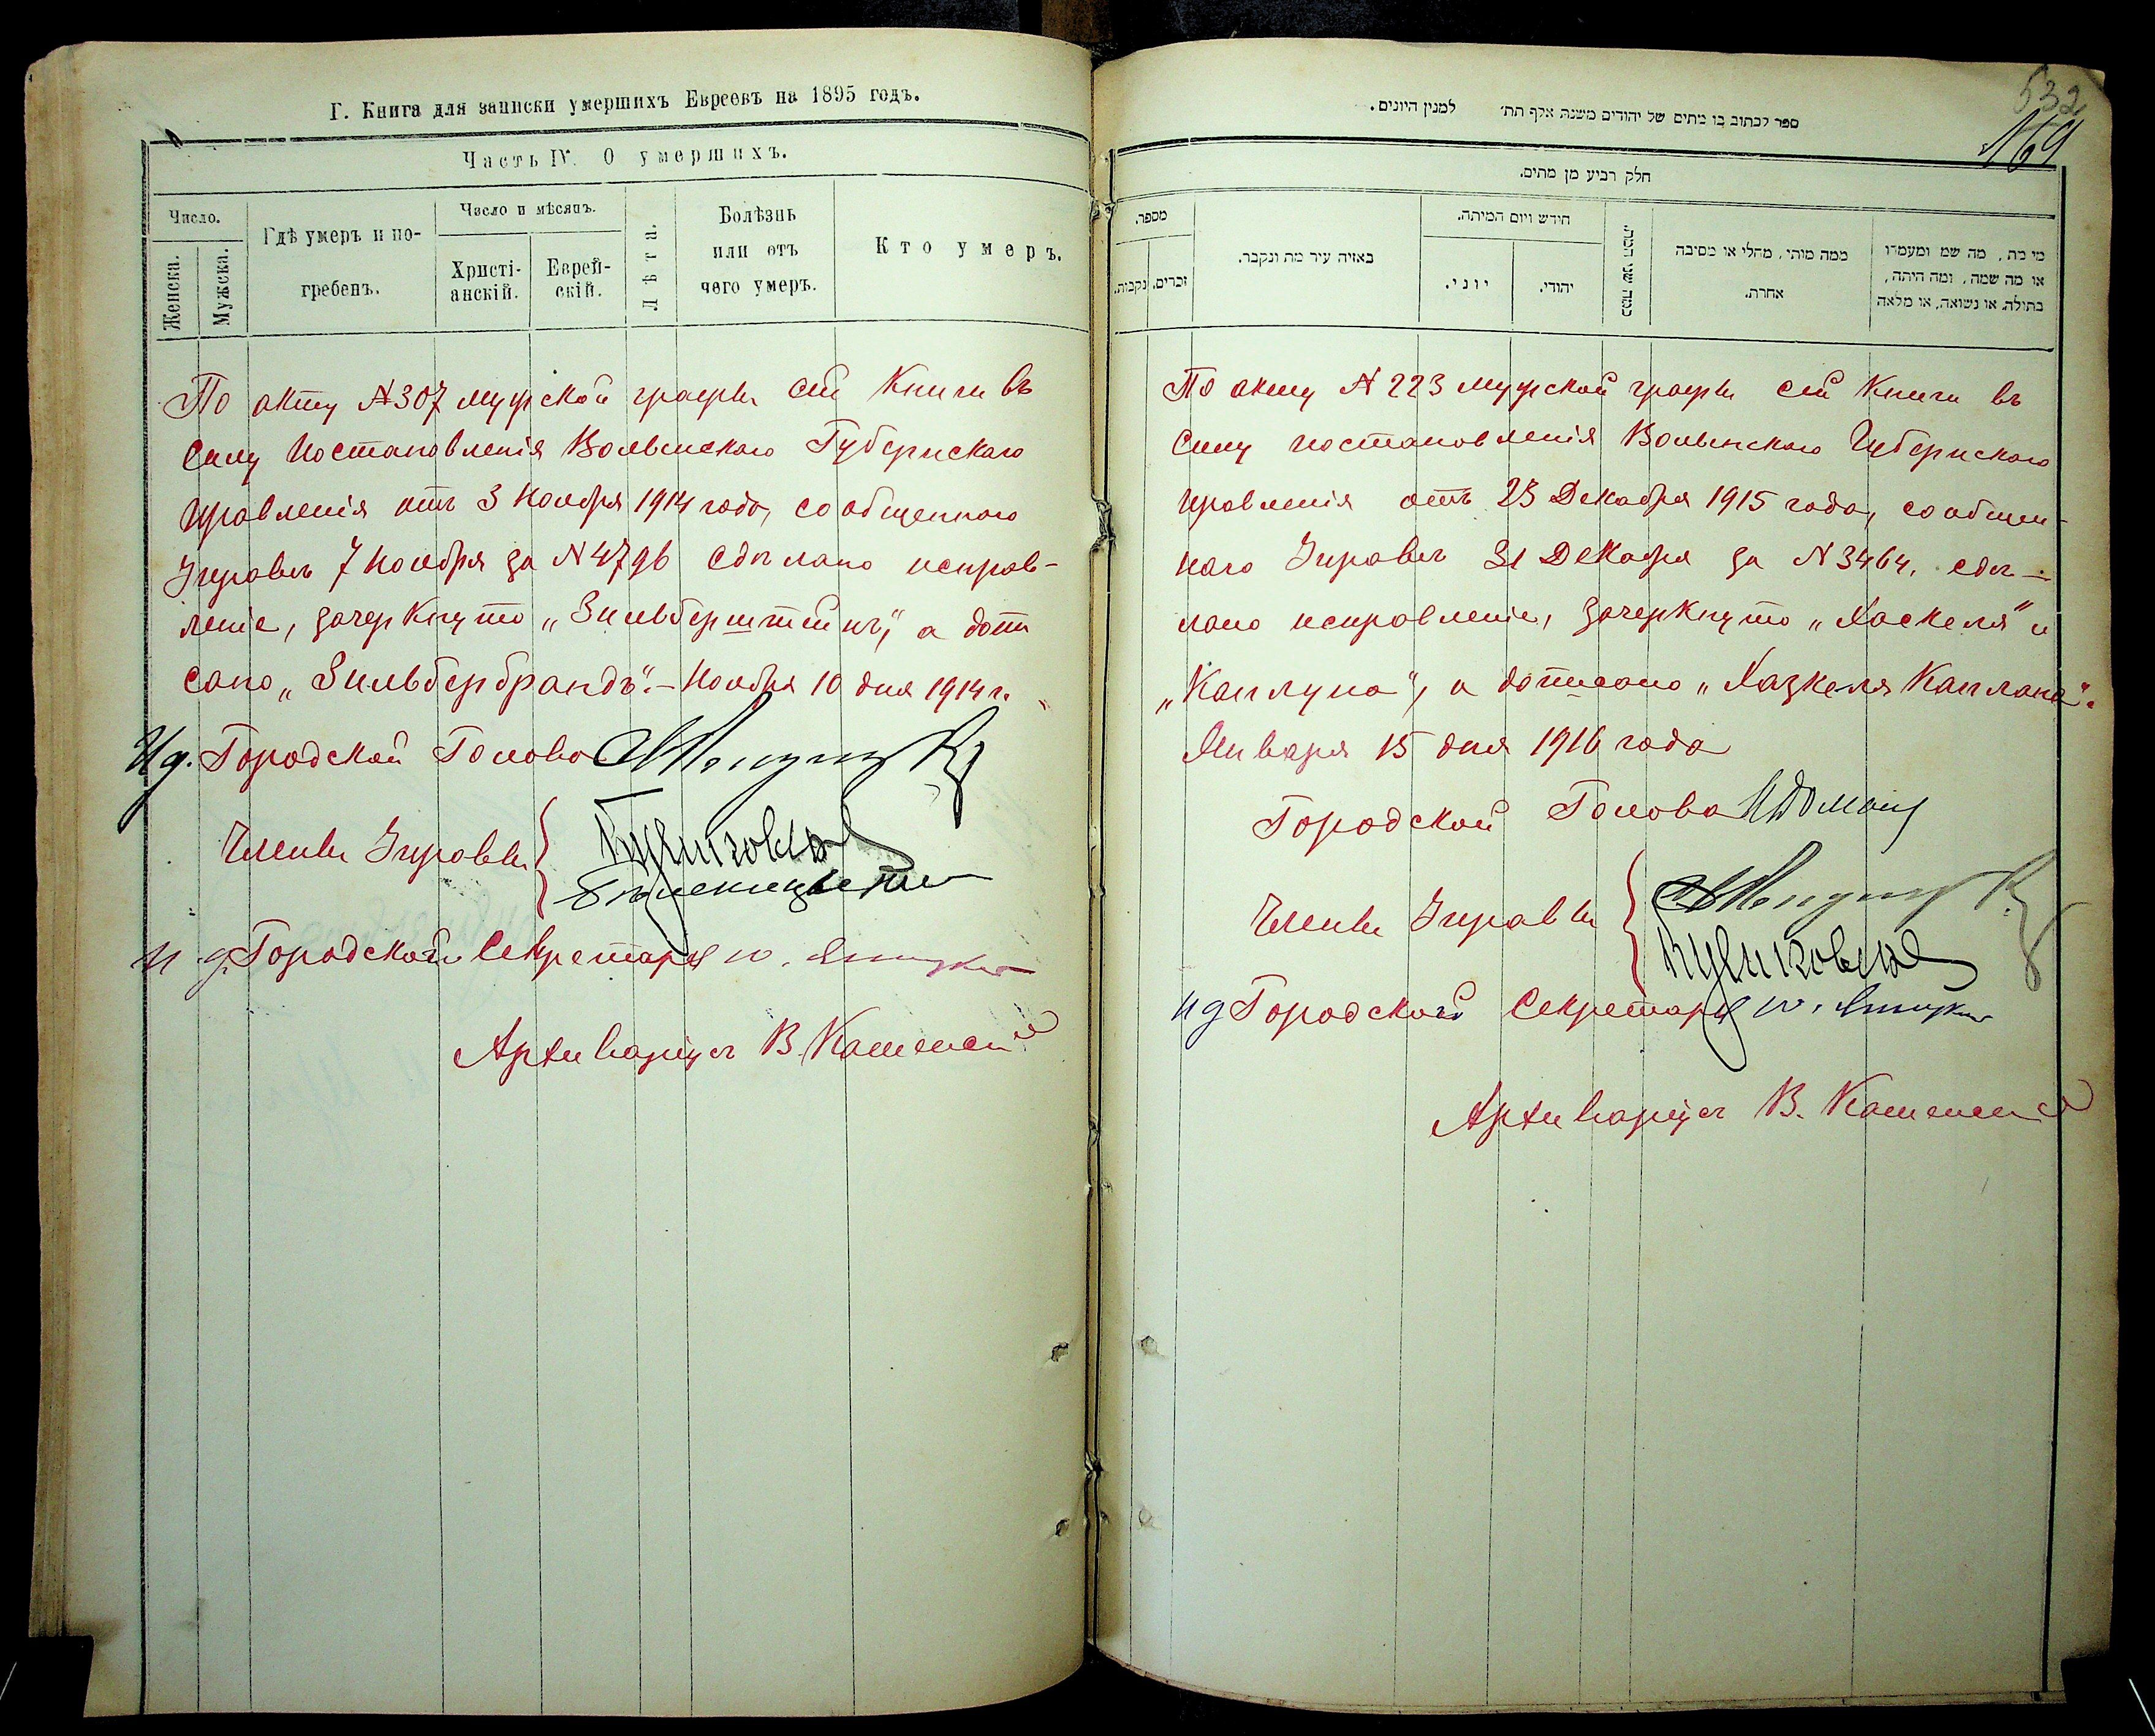 Г. Книга для записки умершихъ Евреевъ на 1895 годъ.
Часть IV. О умершихъ.
Число.
Женска.
Мужска.
Гдѣ умеръ и по-
гребенъ.
Число и мѣсяцъ.
Христі-
анскій.
Еврей-
скій.
Лѣта.
Болѣзнь
или отъ
чего умеръ.
Кто умеръ.
По акту №307 мужской графы сей Книги въ
силу Постановленія Волынскаго Губернскаго
Правленія отъ 3 Ноября 1914 года, сообщеннаго
Управѣ 7 Ноября за №4796 сдѣлано исправ-
леніе, зачеркнуто „Зильберштейнъ", а допи
сано „Зильбербрандъ".- Ноября 10 дня 1914 г.
И д. Городской Голова
Члены Управы
и. д. Городской Секретарь
Архиваріусъ В.
532
169
ספר לכתוב בו מתים של יהודים משנת אלף תת׳ למנין היונים.
חלק רביע מן מתים.
מספר.
נקבות.
זכרים.
באיזה עיר מת ונקבר.
חודש ויום המיתה.
יוני.
יהודי.
כמה שני חייה.
ממה מותי, מחלי או מסיבה
אחרת.
מי מת, מה שמו ומעמדו
או מה שמה, ומה היתה,
בתולה, או נשואה, או מלאה
По акту №223 мужской графы сей Книги въ
силу постановленія Волынскаго Губернскаго
Правленія отъ 23 Декабря 1915 года, сообщен-
наго Управѣ 31 Декабря за №3464, сдѣ-
лано исправленіе, зачеркнуто „Хаскеля" и
„Каплуна", а дописано „Хазкеля Каплана".
Января 15 дня 1916 года
Городской Голова
Члены Управы
и д Городской Секретарь
Архиваріусъ В.